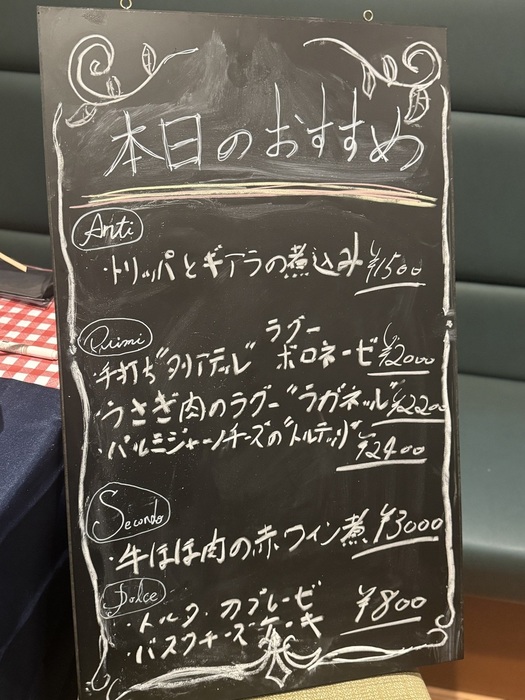 本日のおすすめ
Anti
・トリッパとギアラの煮込み ¥1500
Primi
ラグー
・手打ち"タリアテッレ" ボロネーゼ ¥2000
・うさぎ肉のラグー"ラガネッレ" ¥2200
・パルミジャーノチーズの"トルテッリ" ¥2400
Secondo
・牛ほほ肉の赤ワイン煮 ¥3000
Dolce
・トルタ カプレーゼ
・バスクチーズケーキ ¥800